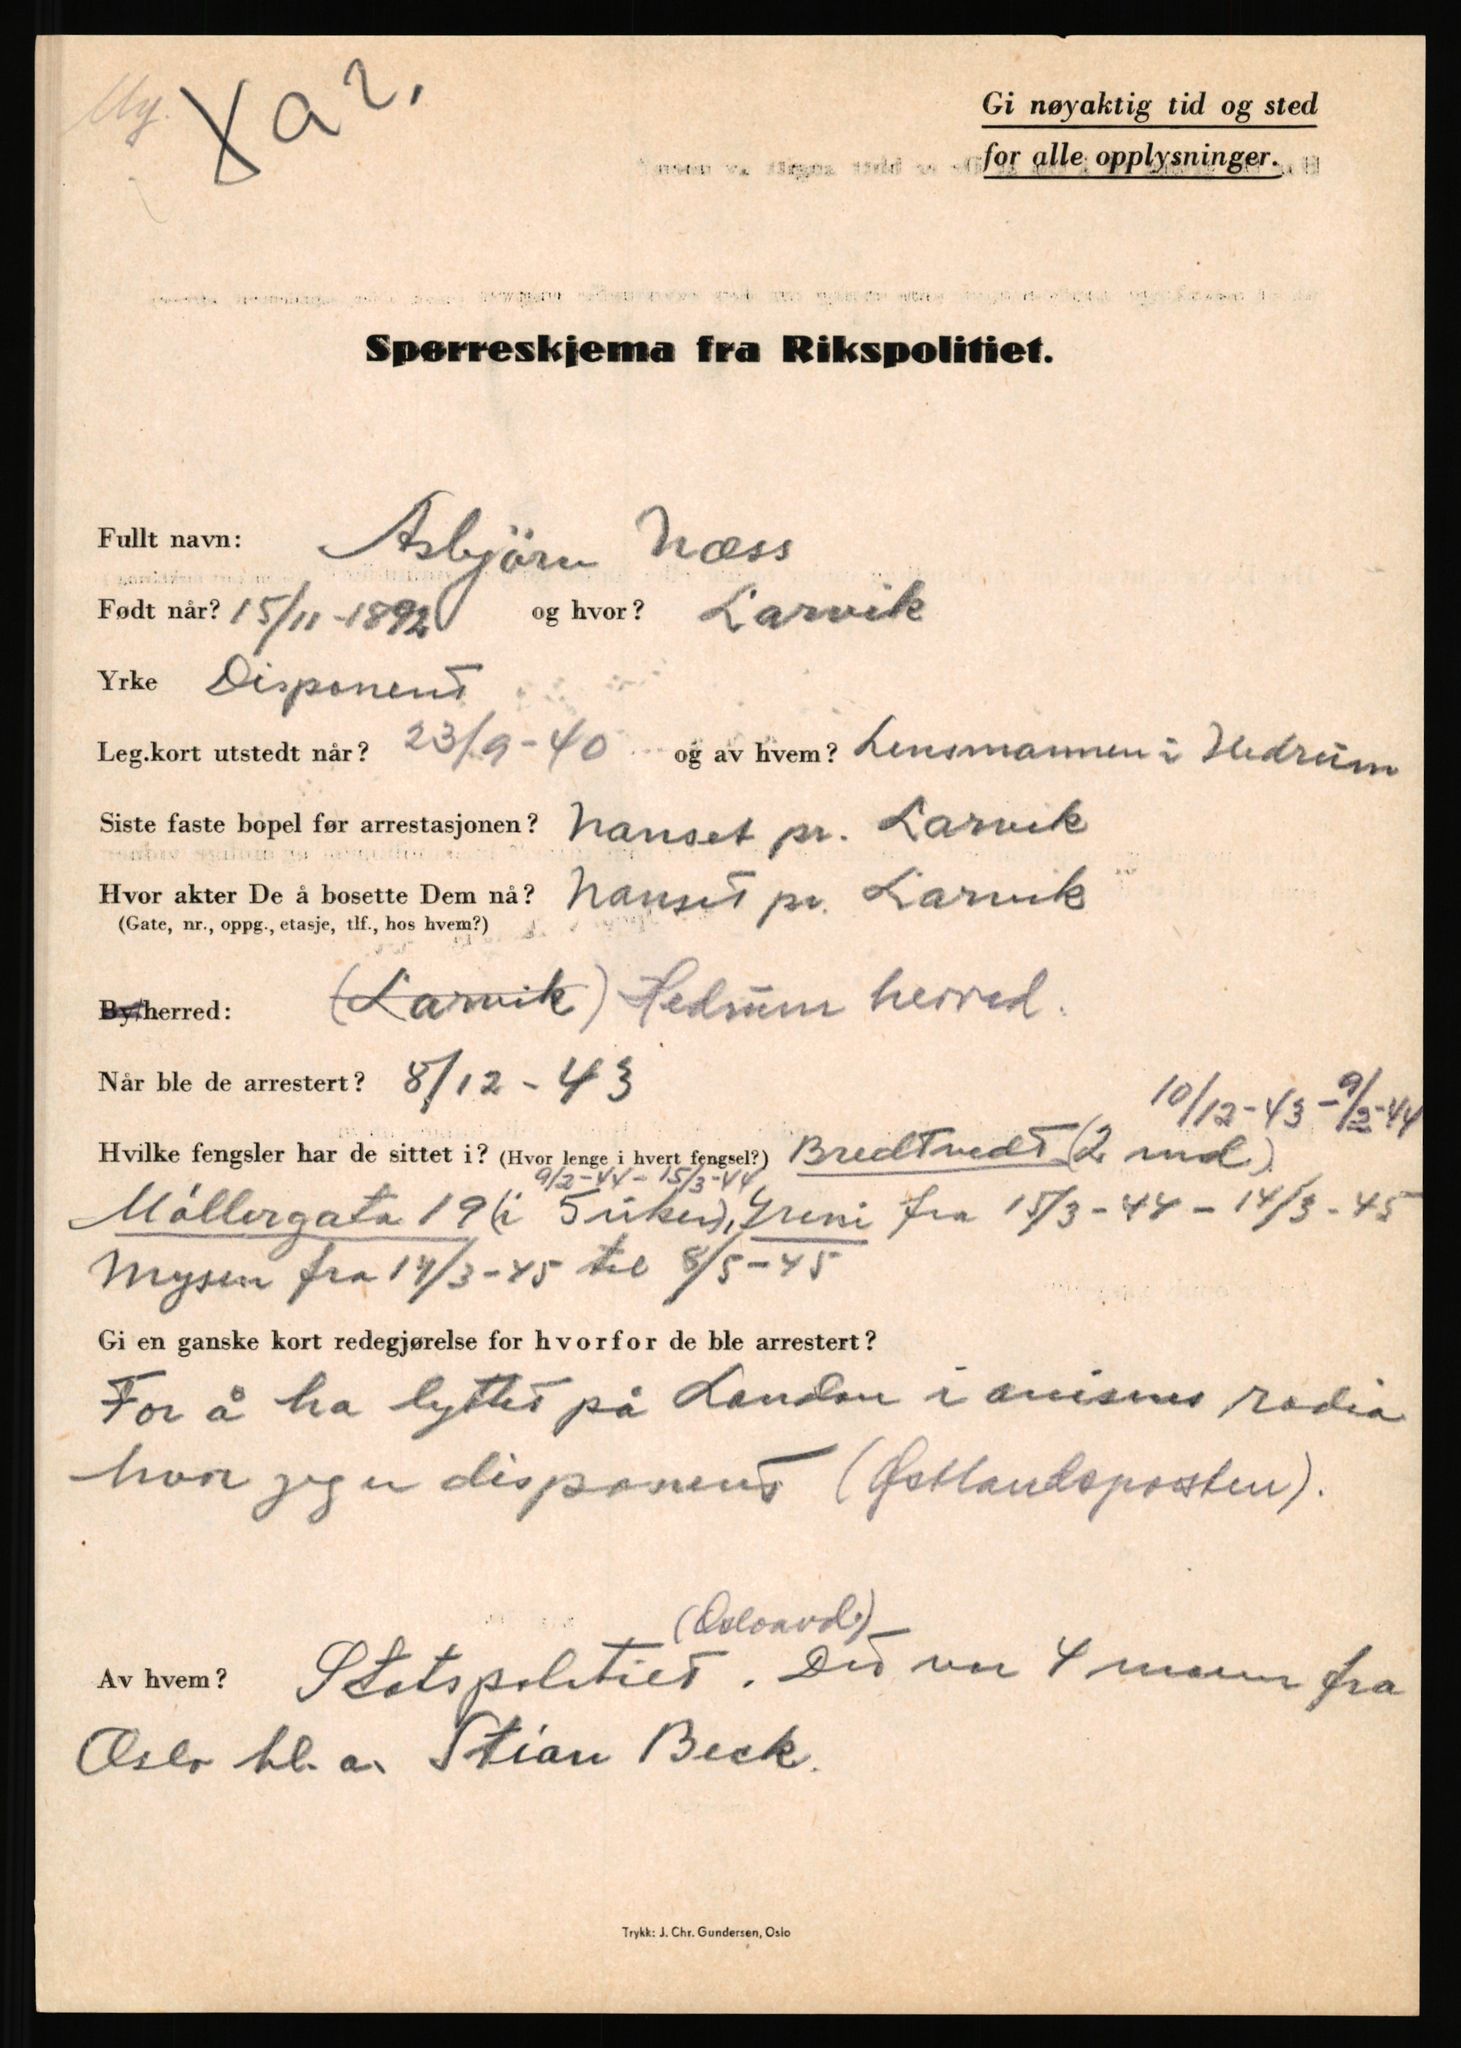 My.
Xa 2.
Gi nøyaktig tid og sted
for alle opplysninger.
Spørreskjema fra Rikspolitiet.
Fullt navn: Asbjörn Næss
Født når? 15/11-1892 og hvor? Larvik
Yrke Disponent
Leg.kort utstedt når? 23/9-40 og av hvem? Lensmannen i Hedrum
Siste faste bopel før arrestasjonen? Nanset pr. Larvik
Hvor akter De å bosette Dem nå? Nanset pr. Larvik
(Gate, nr., oppg., etasje, tlf., hos hvem?)
By/herred: (Larvik) Hedrum herred.
Når ble de arrestert? 8/12-43
10/12-43-9/2-44
Hvilke fengsler har de sittet i? (Hvor lenge i hvert fengsel?) Bredtvedt (2 md.)
9/2-44-15/3-44
Möllergata 19 (i 5 uker), Greni fra 15/3-44-14/3-45
Mysen fra 14/3-45 til 8/5-45
Gi en ganske kort redegjørelse for hvorfor de ble arrestert?
For å ha lyttet på London i avisens radio
hvor jeg er disponent (Østlandsposten).
(Osloavd.)
Av hvem? Statspolitiet. Det var 4 mann fra
Oslo bl. a. Stian Beck.
Trykk: J. Chr. Gundersen, Oslo